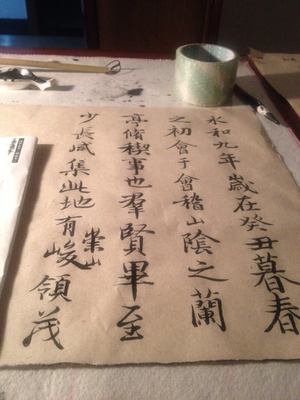 永和九年歲在癸丑暮春
之初會于會稽山陰之蘭
亭脩禊事也羣賢畢至
少長咸集此地有崇山峻領茂